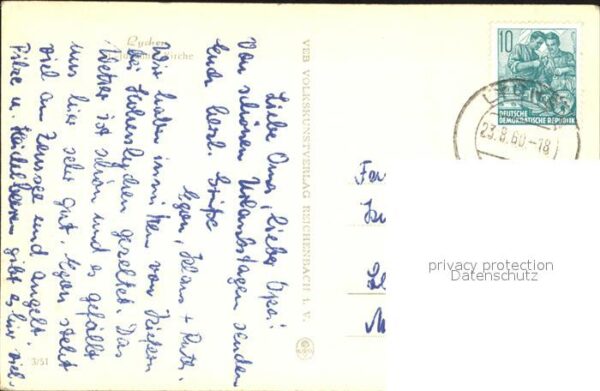 Lychen
Kirche
Liebe Oma, lieber Opa!
Von schönen Urlaubstagen senden
Euch herzl. Grüße
Egon, Klaus + Ruth.
Wir haben inmitten von Kiefern
bei Hohenlychen gezeltet. Das
Wetter ist schön und es gefällt
uns hier sehr gut. Egon steht
viel am Zenssee und angelt.
Pilze u. Heidelbeeren gibt es hier viel.
3/51
VEB VOLKSKUNSTVERLAG REICHENBACH I. V.
10
DEUTSCHE
DEMOKRATISCHE REPUBLIK
23.8.60-18
Fa
privacy protection
Datenschutz